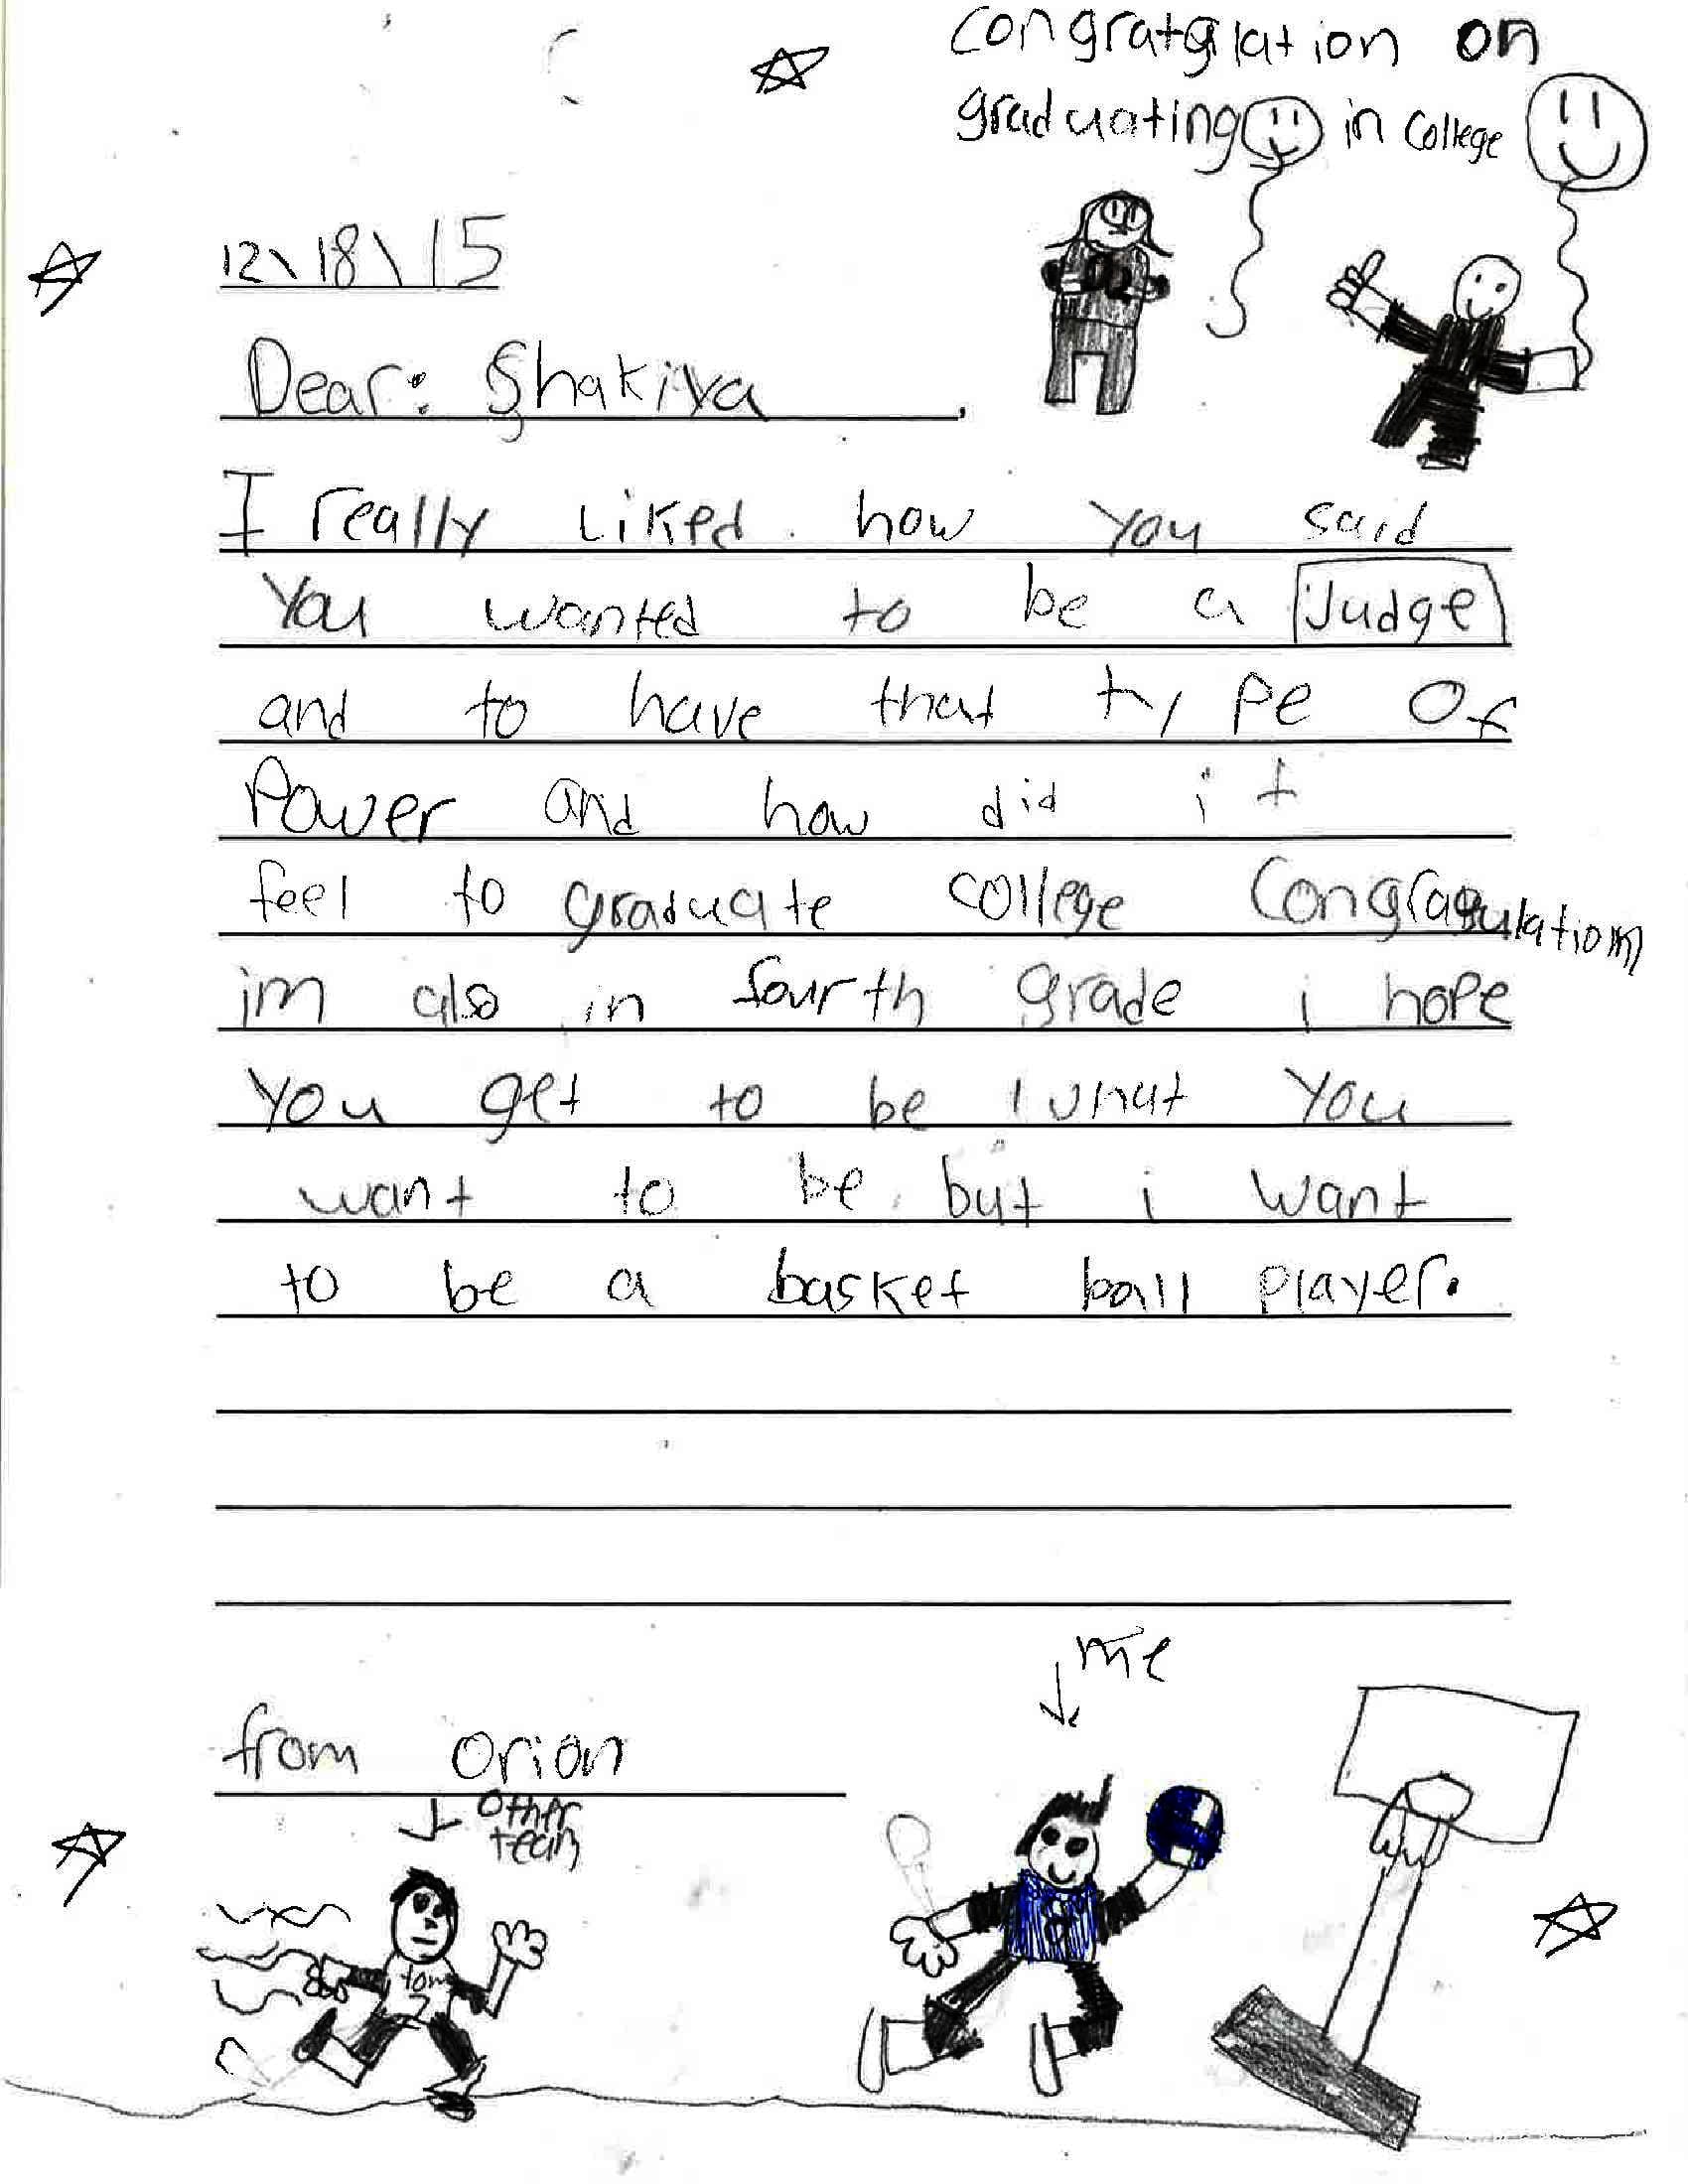 congratgilation on
graduating in college
12\18\15
Dear: Shakiya
I really liked how you said
You wanted to be a Judge
and to have that type of
Power and how did it
feel to graduate college Congratulation
im also in fourth grade i hope
you get to be what you
want to be but i want
to be a basket ball player.
me
from orion
other
team
7